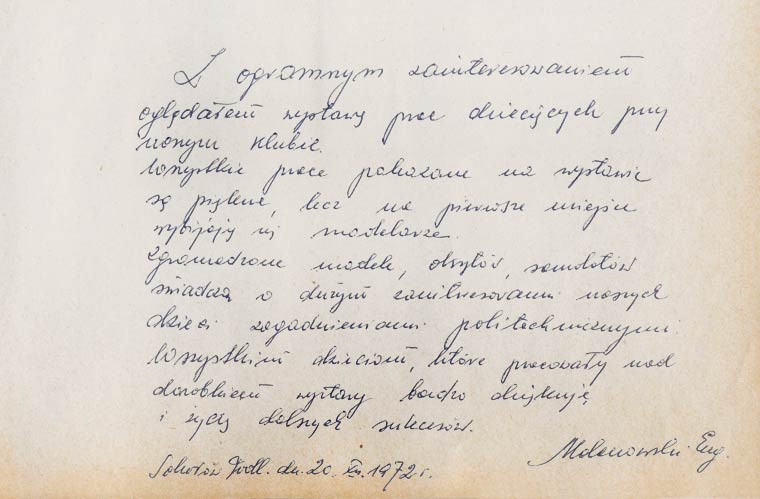 Z ogromnym zainteresowaniem
oglądałem wystawę prac dziecięcych przy
naszym klubie.
Wszystkie prace pokazane na wystawie
są piękne, lecz na pierwsze miejsce
wybijają się modelarze.
Zgromadzone modele, okrętów, samolotów
świadczą o dużym zainteresowaniu naszych
dzieci zagadnieniami politechnicznymi.
Wszystkim dzieciom, które pracowały nad
dorobkiem wystawy bardzo dziękuję
i życzę dalszych sukcesów.
Sokołów Podl. dn. 20. XII. 1972 r.
Malanowski Eug.